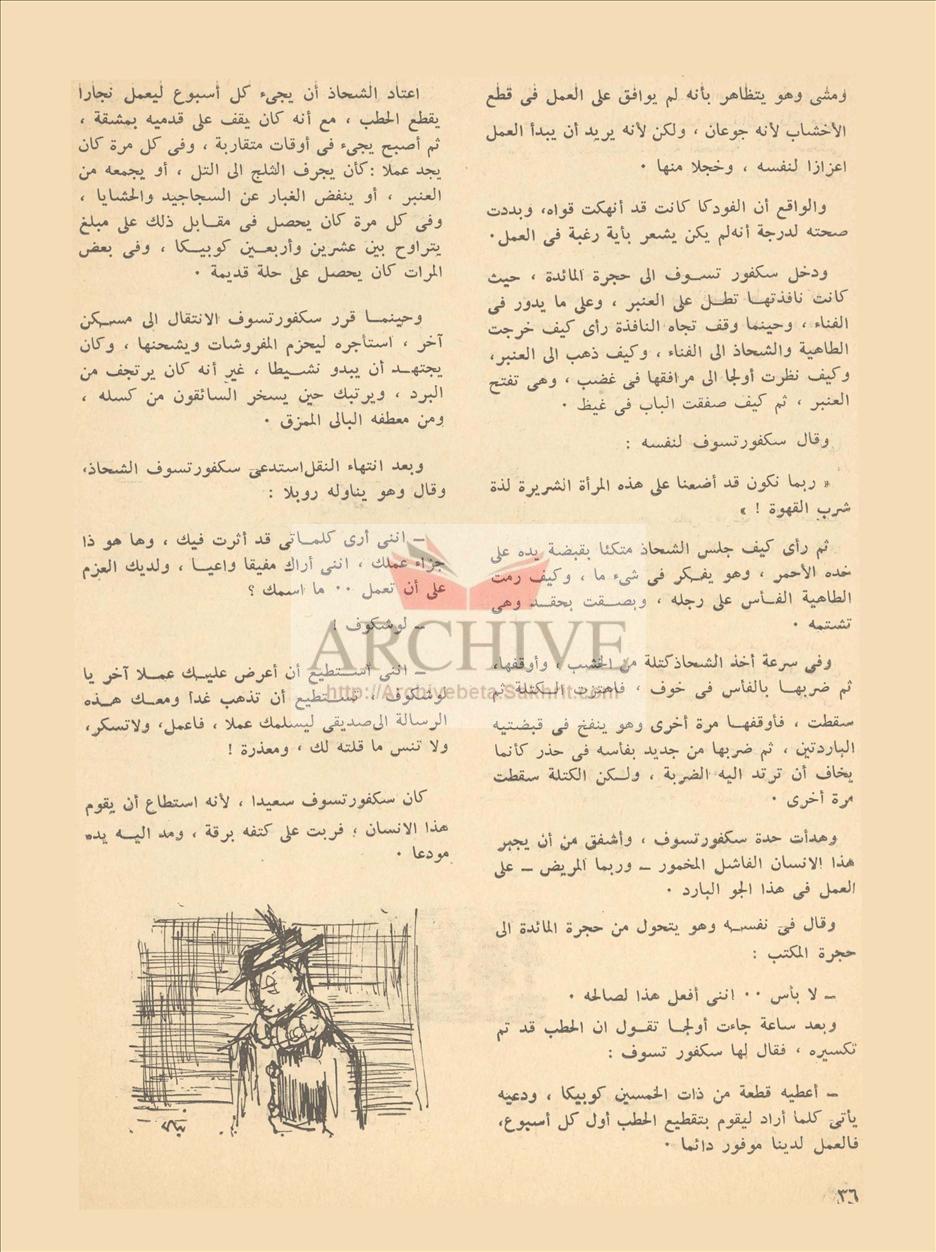 ومشى وهو يتظاهر بأنه لم يوافق على العمل فى قطع
الأخشاب لأنه جوعان ، ولكن لأنه يريد أن يبدأ العمل
اعزازا لنفسه ، وخجلا منها ٠
والواقع أن الفودكا كانت قد أنهكت قواه، وبددت
صحته لدرجة أنه لم يكن يشعر بأية رغبة فى العمل٠
ودخل سكفور تسوف الى حجرة المائدة ، حيث
كانت نافذتها تطل على العنبر ، وعلى ما يدور فى
الفناء ، وحينما وقف تجاه النافذة رأى كيف خرجت
الطاهية والشحاذ الى الفناء ، وكيف ذهب الى العنبر،
وكيف نظرت أولجا الى مرافقها فى غضب ، وهى تفتح
العنبر ، ثم كيف صفقت الباب فى غيظ ٠
وقال سكفورتسوف لنفسه :
« ربما نكون قد أضعنا على هذه المرأة الشريرة لذة
شرب القهوة ! »
ثم رأى كيف جلس الشحاذ متكئا بقبضة يده على
خده الأحمر ، وهو يفكر فى شىء ما ، وكيف رمت
الطاهية الفأس على رجله ، وبصقت بحقد وهى
تشتمه ٠
وفى سرعة أخذ الشحاذ كتلة من الخشب ، وأوقفها،
ثم ضربها بالفأس فى خوف ، فاهتزت الكتلة ثم
سقطت ، فأوقفها مرة أخرى وهو ينفخ فى قبضتيه
الباردتين ، ثم ضربها من جديد بفأسه فى حذر كأنما
يخاف أن ترتد اليه الضربة ، ولكن الكتلة سقطت
مرة أخرى ٠
وهدأت حدة سكفورتسوف ، وأشفق من أن يجبر
هذا الانسان الفاشل المخمور ــ وربما المريض ــ على
العمل فى هذا الجو البارد ٠
وقال فى نفسه وهو يتحول من حجرة المائدة الى
حجرة المكتب :
ــ لا بأس ٠٠ اننى أفعل هذا لصالحه ٠
وبعد ساعة جاءت أولجا تقول ان الحطب قد تم
تكسيره ، فقال لها سكفور تسوف :
ــ أعطيه قطعة من ذات الخمسين كوبيكا ، ودعيه
يأتى كلما أراد ليقوم بتقطيع الحطب أول كل أسبوع،
فالعمل لدينا موفور دائما ٠
اعتاد الشحاذ أن يجىء كل أسبوع ليعمل نجارا
يقطع الحطب ، مع أنه كان يقف على قدميه بمشقة ،
ثم أصبح يجىء فى أوقات متقاربة ، وفى كل مرة كان
يجد عملا : كان يجرف الثلج الى التل ، أو يجمعه من
العنبر ، أو ينفض الغبار عن السجاجيد والحشايا ،
وفى كل مرة كان يحصل فى مقابل ذلك على مبلغ
يتراوح بين عشرين وأربعين كوبيكا ، وفى بعض
المرات كان يحصل على حلة قديمة ٠
وحينما قرر سكفورتسوف الانتقال الى مسكن
آخر ، استأجره ليحزم المفروشات ويشحنها ، وكان
يجتهد أن يبدو نشيطا ، غير أنه كان يرتجف من
البرد ، ويرتبك حين يسخر السائقون من كسله ،
ومن معطفه البالى الممزق ٠
وبعد انتهاء النقل استدعى سكفورتسوف الشحاذ،
وقال وهو يناوله روبلا :
ــ اننى أرى كلماتى قد أثرت فيك ، وها هو ذا
جزاء عملك ، اننى أراك مفيقا واعيا ، ولديك العزم
على أن تعمل ٠٠ ما اسمك ؟
ــ لوشكوف !
ــ اننى أستطيع أن أعرض عليك عملا آخر يا
لوشكوف ، تستطيع أن تذهب غدا ومعك هذه
الرسالة الى صديقى ليسلمك عملا ، فاعمل، ولا تسكر،
ولا تنس ما قلته لك ، ومعذرة !
كان سكفورتسوف سعيدا ، لأنه استطاع أن يقوم
هذا الانسان ؛ فربت على كتفه برقة ، ومد اليه يده
مودعا ٠
ARCHIVE
http://Archivebeta.Sakhrit.com
٣٦